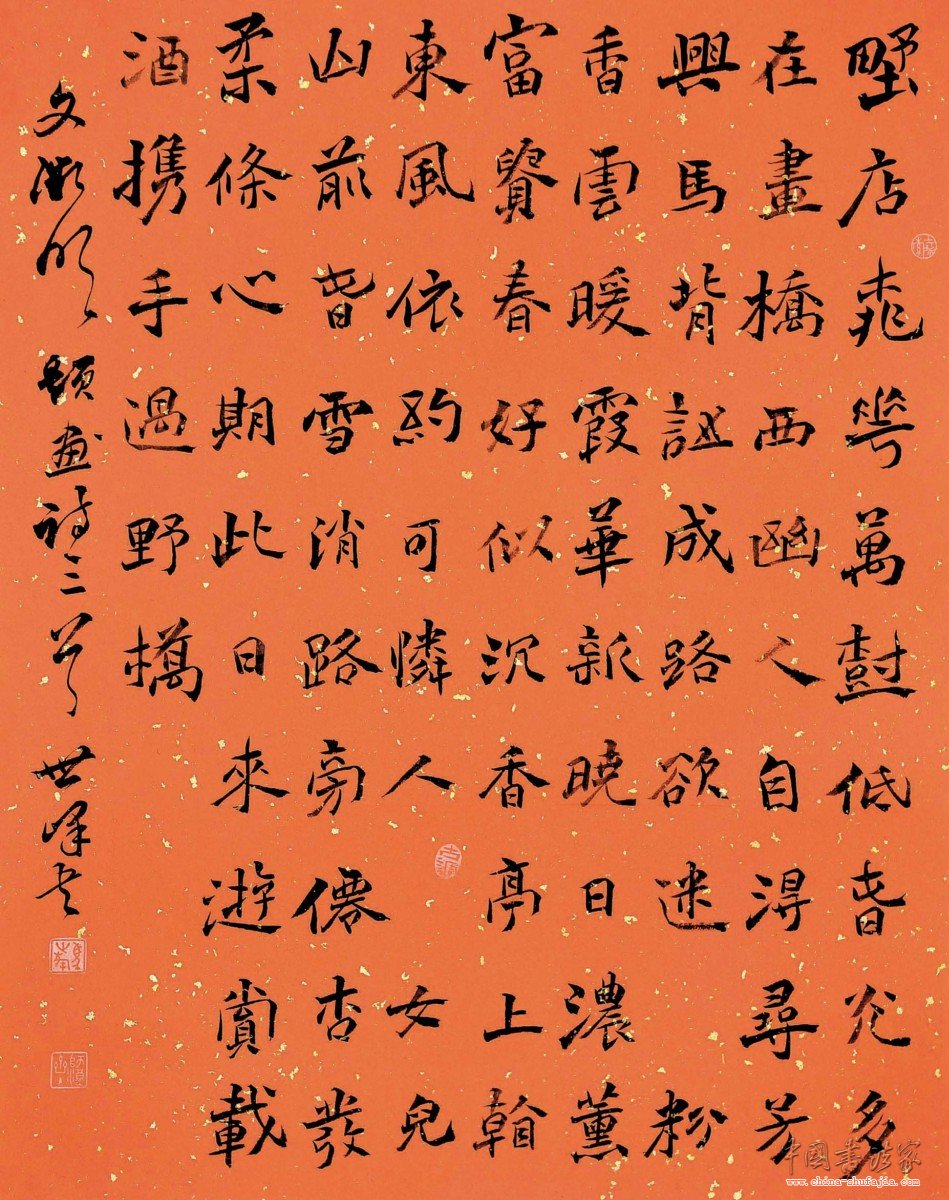 野店桃花萬樹低春光多
在畫橋西幽人自得尋芳
興馬背詩成路欲迷 粉
香雲暖霞華新曉日濃薰
富貴春好似沉香亭上看
東風依約可憐人 女兒
山前春雪消路旁僊杏發
柔條心期此日來遊賞載
酒携手過野橋
文徵明題畫詩三首 世峰書
中國書法家
www.china-shufajia.com